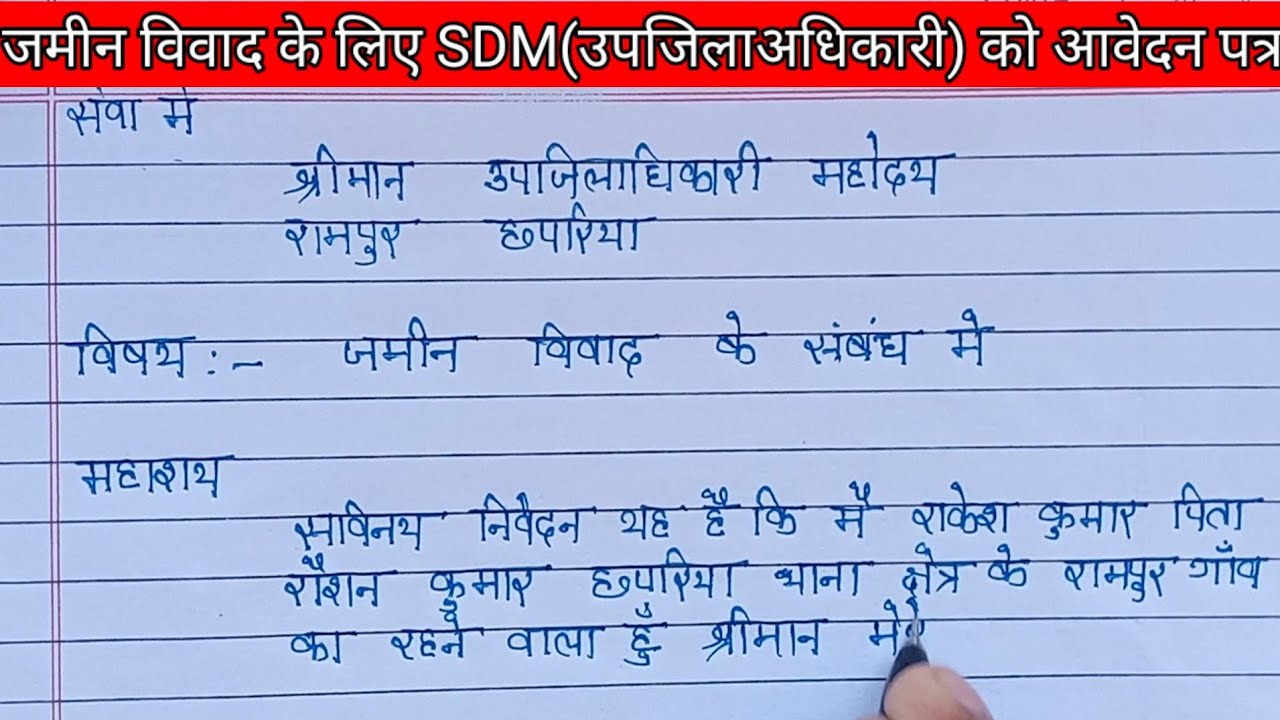 जमीन विवाद के लिए SDM(उपजिलाअधिकारी) को आवेदन पत्र
सेवा मे
श्रीमान उपजिलाधिकारी महोदय
रामपुर छपरिया
विषय :- जमीन विवाद के संबंध मे
महाशय
सविनय निवेदन यह है कि मै राकेश कुमार पिता
रौशन कुमार छपरिया थाना क्षेत्र के रामपुर गाँव
का रहने वाला हुँ श्रीमान मेरे